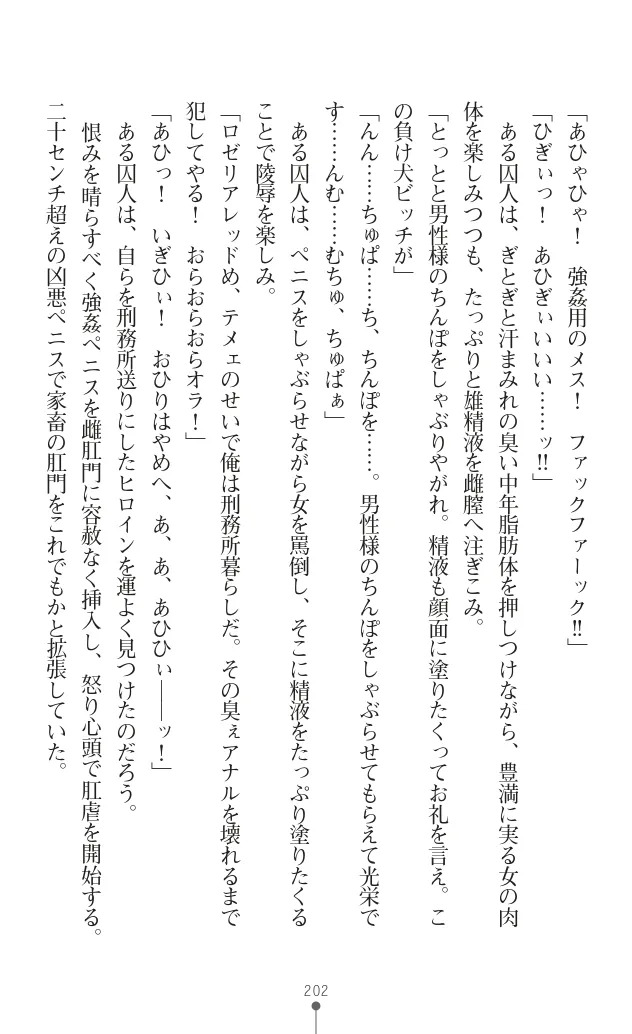 「あひゃひゃ！　強姦用のメス！　ファックファーック‼」
「ひぎぃっ！　あひぎぃいいい……ッ‼」
　ある囚人は、ぎとぎと汗まみれの臭い中年脂肪体を押しつけながら、豊満に実る女の肉
体を楽しみつつも、たっぷりと雄精液を雌膣へ注ぎこみ。
「とっとと男性様のちんぽをしゃぶりやがれ。精液も顔面に塗りたくってお礼を言え。こ
の負け犬ビッチが」
「んん……ちゅぱ……ち、ちんぽを……。男性様のちんぽをしゃぶらせてもらえて光栄で
す……んむ……むちゅ、ちゅぱぁ」
　ある囚人は、ペニスをしゃぶらせながら女を罵倒し、そこに精液をたっぷり塗りたくる
ことで陵辱を楽しみ。
「ロゼリアレッドめ、テメェのせいで俺は刑務所暮らしだ。その臭ぇアナルを壊れるまで
犯してやる！　おらおらおらオラ！」
「あひっ！　いぎひぃ！　おひりはやめへ、あ、あ、あひひぃ――ッ！」
　ある囚人は、自らを刑務所送りにしたヒロインを運よく見つけたのだろう。
　恨みを晴らすべく強姦ペニスを雌肛門に容赦なく挿入し、怒り心頭で肛虐を開始する。
二十センチ超えの凶悪ペニスで家畜の肛門をこれでもかと拡張していた。
202